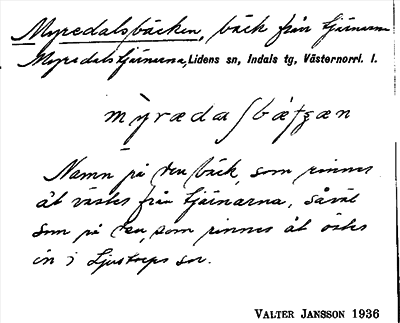 Myredalsbäcken, bäck från tjärnarna
Myredalstjärnarna, Lidens sn, Indals tg, Västernorrl. l.
mỳræda ʃbætʒæn
Namn på den bäck, som rinner
åt väster från tjärnarna, såväl
som på den, som rinner åt öster
in i Ljustorps sn.
VALTER JANSSON 1936